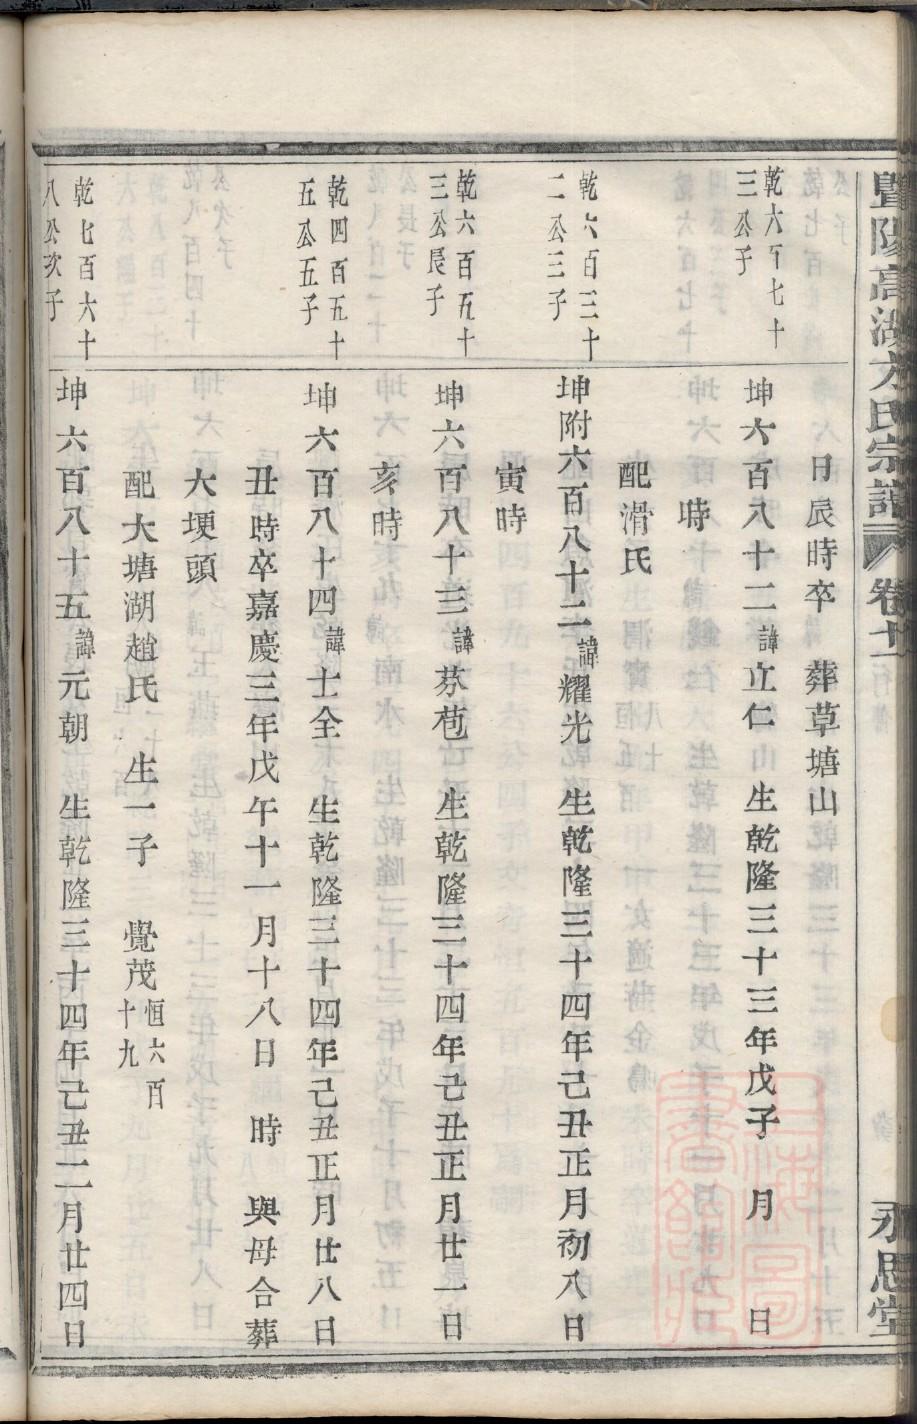 暨陽高湖方氏宗譜 卷十一 永思堂
日辰時卒 葬草塘山
乾六百七十
三公子
坤六百八十二諱立仁 生乾隆三十三年戊子 月 日
時
配滑氏
乾六百三十
二公三子
坤附六百八十二諱耀光 生乾隆三十四年己丑正月初八日
寅時
乾六百五十
三公長子
坤六百八十三諱芬苞 生乾隆三十四年己丑正月廿一日
亥時
乾四百五十
五公五子
坤六百八十四諱士全 生乾隆三十四年己丑正月廿八日
丑時卒嘉慶三年戊午十一月十八日 時 與母合葬
大埂頭
配大塘湖趙氏 生一子 覺茂恒六百十九
乾七百六十
八公次子
坤六百八十五諱元朝 生乾隆三十四年己丑二月廿四日